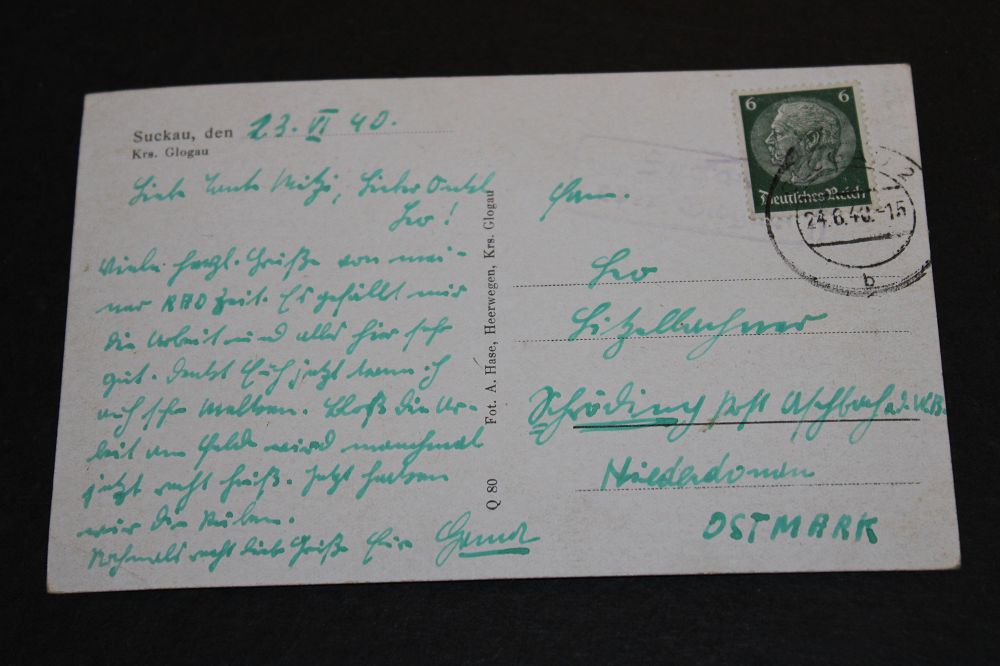 Suckau, den 23. VI 40.
Krs. Glogau
Liebe Tante Mitzi, Lieber Onkel
Leo!
Viele herzl. Grüße von mei-
ner RAD Zeit. Es gefällt mir
die Arbeit und alles hier sehr
gut. Denkt Euch jetzt kann ich
auch schon Melken. Bloß die Ar-
beit am Felde wird manchmal
jetzt recht heiß. Jetzt hacken
wir die Rüben.
Nochmals recht liebe Grüße Eure
Q 80 Fot. A. Hase, Heerwegen, Krs. Glogau
6 6
Deutsches Reich
24.6.40.-15
b
Fam.
Leo
Litzellachner
Schröding Post Aschbach
Niederdonau
OSTMARK